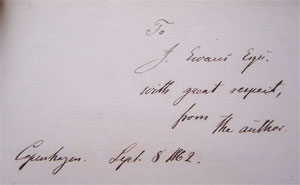 To
J. Evans Esqr.
with great respect,
from
the author.
Copenhagen. Sept. 8 1862.